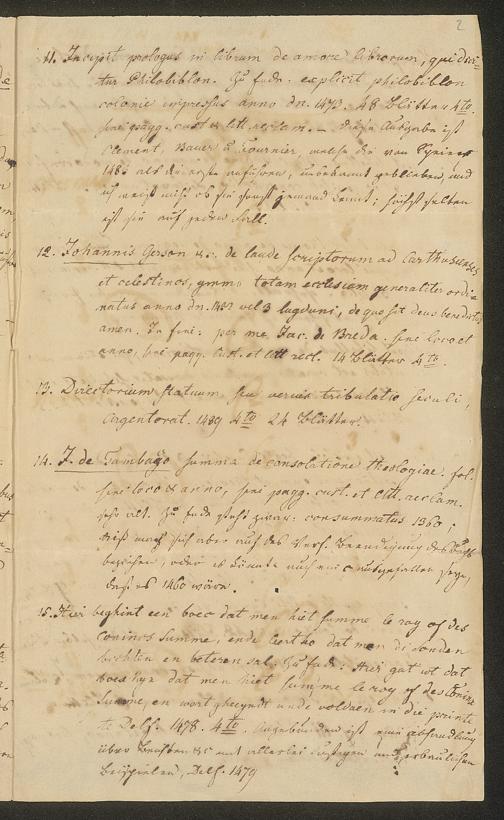 2
11. Incipit prologus in librum de amore librorum, qui dici-
tur Philobiblon. Zu Ende: explicit philobiblon
colonie impressus anno dn. 1473. 48 Blätter 4to.
sine pagg. cust. et litt. reclam. – diese Ausgabe ist
Clement, Bauer u. Fournier, welche die von Speier
1483 als die erste anführen, unbekannt geblieben, und
ich weiß nicht ob sie sonst jemand kennt; höchst selten
ist sie auf jeden Fall.
12. Johannis Gerson &c. de laude scriptorum ad Carthusienses
et celestinos, ymmo totam ecclesiam generaliter ordi-
natus anno dn. 1423 vel 3 lugduni, de quo sit deus benedictus
amen. In fine: per me Jac. de Breda. sine loco et
anno, sine pagg. cust. et litt. recl. 14 Blätter 4to.
13. Directorium statuum seu verius tribulatio seculi,
Argentorat. 1489 4to 24 Blätter.
14. J. de Tambago summa de consolatione theologiae. fol.
sine loco & anno, sine pagg. cust. et litt. reclam.
sehr alt. Zu Ende steht zwar: consummatus 1360;
dieß mag sich aber auf des Verf. Beendigung des Buchs
beziehen, oder es könnte auch ein c ausgefallen seyn,
daß es 1460 wäre.
15. Hier beghint een boec dat men hiet summe le roy of des
conincs summe, ende leert ho dat men di sonden
biechten en beteren sal. Zu Ende: Hier gat ut dat
boec hyr dat men hiet summe le roy of des Conincs
Summe, en wort gheeyndt ende voldaen in die prente
te Delf. 1478. 4to. Angebunden ist eine abhandlung
über Beichten &c mit allerlei lustigen und erbaulichen
Beispielen, Delf. 1479